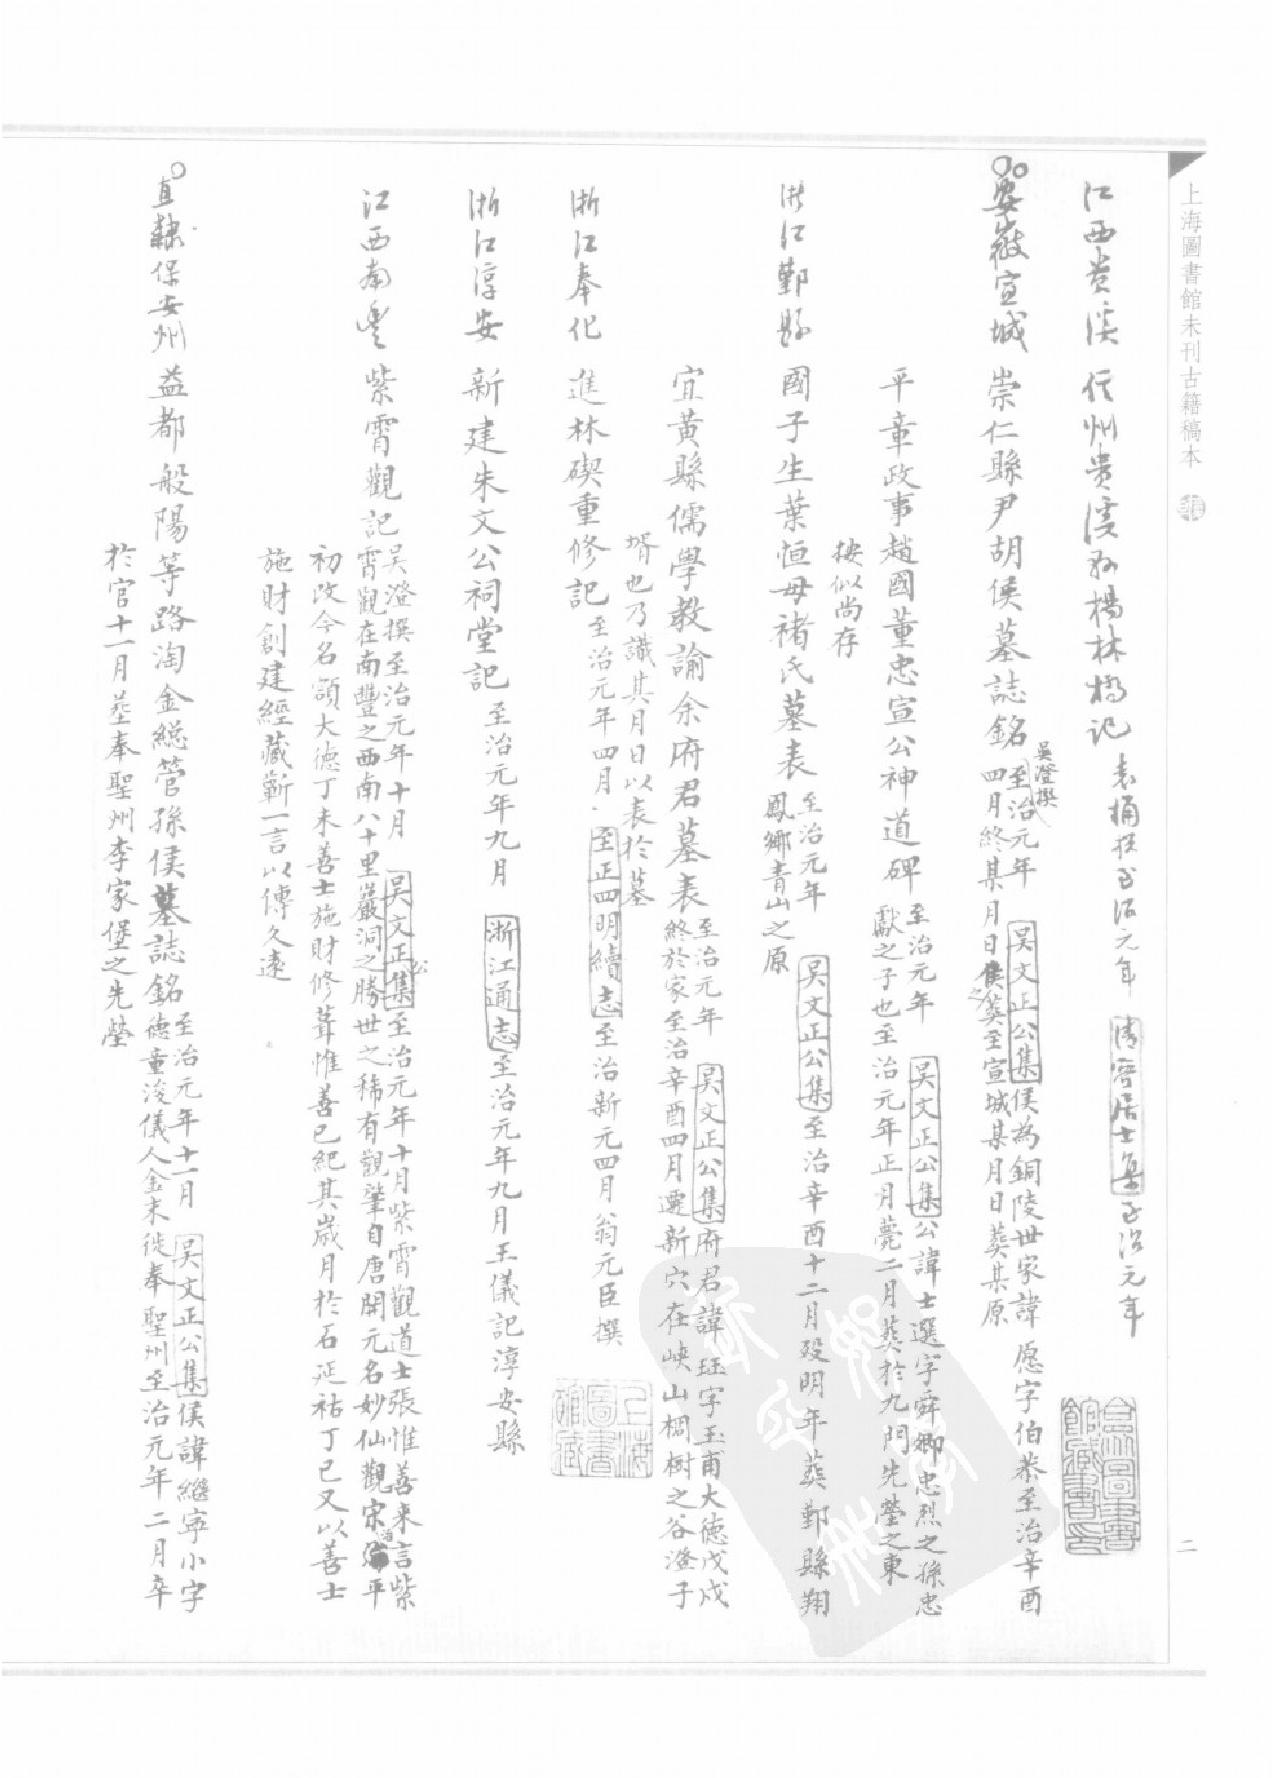 上海圖書館未刊古籍稿本
二
江西貴溪 信州貴溪縣楊林橋記 袁桷撰至治元年 清容居士集 至治元年
安徽宣城 崇仁縣尹胡侯墓誌銘 吳澄撰 至治元年 吳文正公集 侯為銅陵世家諱愿字伯恭至治辛酉
四月終某月日侯之葬至宣城某月日葬某原
平章政事趙國董忠宣公神道碑 至治元年 吳文正公集 公諱士選字舜卿忠烈之孫忠
獻之子也至治元年正月薨二月葬於九門先塋之東
按似尚存
浙江鄞縣 國子生葉恒母褚氏墓表 至治元年 吳文正公集 至治辛酉十二月歿明年葬鄞縣翔
鳳鄉青山之原
宜黃縣儒學教諭余府君墓表 至治元年 吳文正公集 府君諱珏字玉甫大德戊戌
終於家至治辛酉四月遷新穴在峽山椆樹之谷澄子
壻也乃識其月日以表於墓
浙江奉化 進林碶重修記 至治元年四月 至正四明續志 至治新元四月翁元臣撰
浙江淳安 新建朱文公祠堂記 至治元年九月 浙江通志 至治元年九月王儀記淳安縣
江西南豐 紫霄觀記 吳澄撰至治元年十月 吳文正公集 至治元年十月紫霄觀道士張惟善来言紫
霄觀在南豐之西南八十里巖洞之勝世之稀有觀肇自唐開元名妙仙觀宋治平
初改今名額大德丁未善士施財修葺惟善已紀其歲月於石延祐丁巳又以善士
施財創建經藏蘄一言以傳久遠
直隸保安州 益都般陽等路淘金總管孫侯墓誌銘 至治元年十一月 吳文正公集 侯諱繼寧小字
德重浚儀人金末徙奉聖州至治元年二月卒
於官十一月葬奉聖州李家堡之先塋